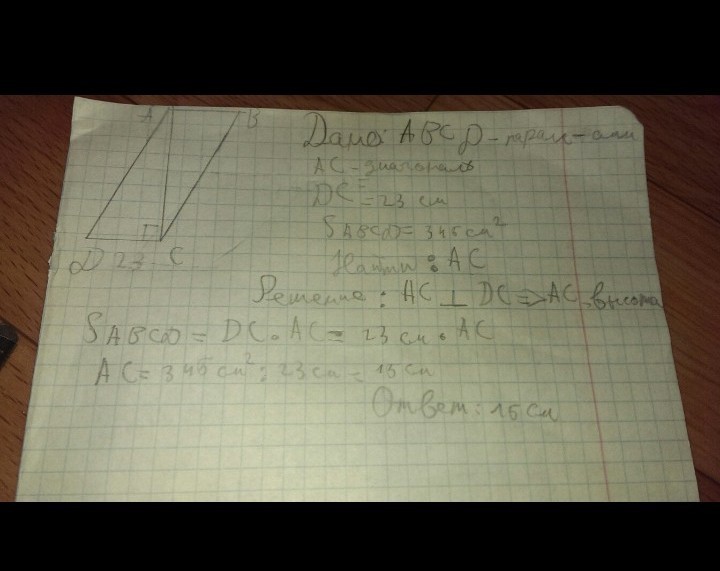 A B
D 23 C
Дано: ABCD - парал-амм
AC - диагональ
DC = 23 см
SABCD = 345 см²
Найти: AC
Решение: AC ⊥ DC => AC - высота
SABCD = DC · AC = 23 см · AC
AC = 345 см² : 23 см = 15 см
Ответ: 15 см